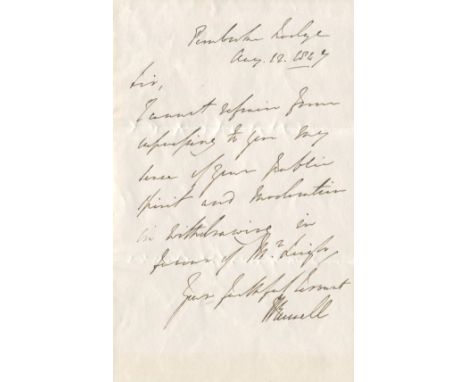 Pembroke Lodge
Aug. 12. 1847
Sir,
I cannot refrain from
expressing to you my
sense of your public
spirit and moderation
in withdrawing in
favour of Mr
Your faithful Servant
J Russell